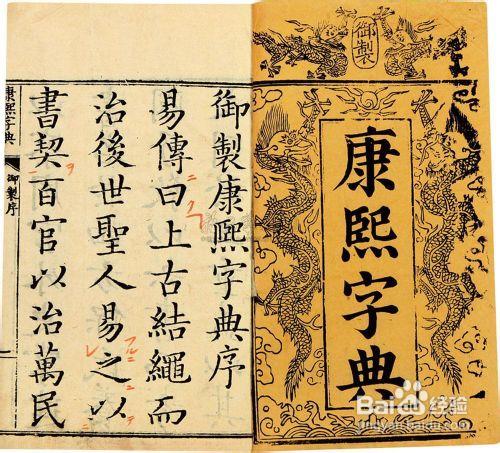 御製
康熙字典
御製康熙字典序
易傳曰上古結繩而
治後世聖人易之以
書契百官以治萬民
康熙字典
御製序
Baidu经验
jingyan.baidu.com